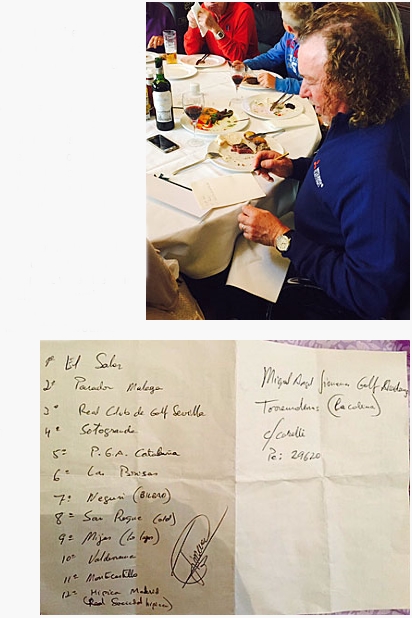 1º El Saler
2º Parador Malaga
3º Real Club de Golf Sevilla
4º Sotogrande
5º P.G.A. Cataluña
6º Las Brisas
7º Neguri (BILBAO)
8º San Roque (old)
9º Mijas (Lo lagos)
10º Valderrama
11º Montecastillo
12º Hipica Madrid
(Real Sociedad hipica)
Miguel Angel Jimenez Golf Academy
Torremolinos
c/
Pc: 29620